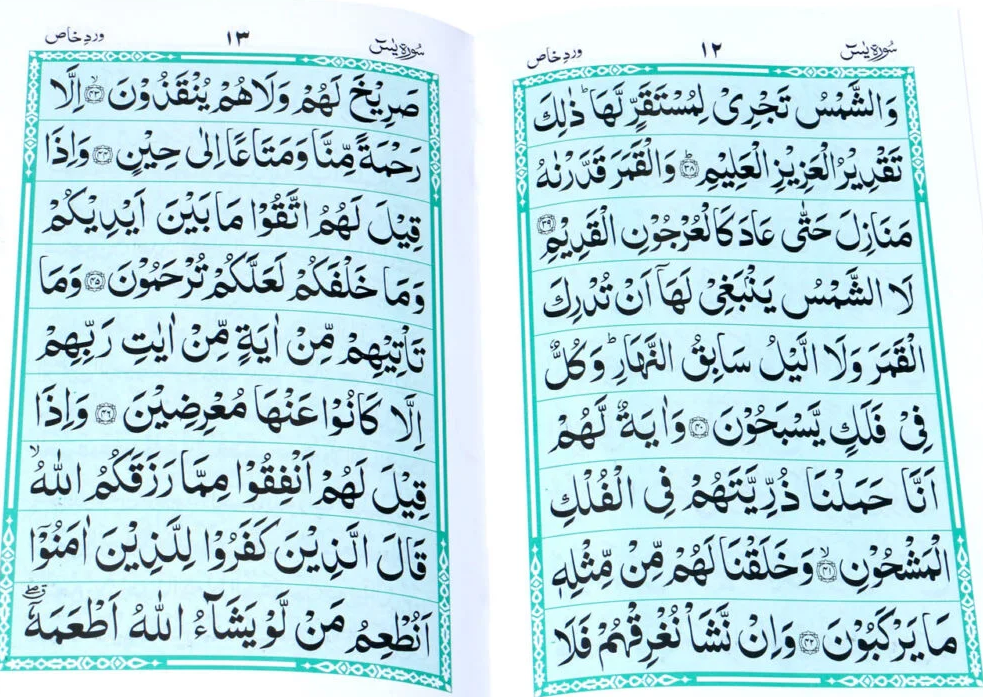 سورہ یٰسٓ ۱۲ وردِ خاص
وَالشَّمْسُ تَجْرِیْ لِمُسْتَقَرٍّ لَّهَا ؕ ذٰلِكَ
تَقْدِیْرُ الْعَزِیْزِ الْعَلِیْمِ ؕ﴿۳۸﴾ وَالْقَمَرَ قَدَّرْنٰهُ
مَنَازِلَ حَتّٰی عَادَ كَالْعُرْجُوْنِ الْقَدِیْمِ ﴿۳۹﴾
لَا الشَّمْسُ یَنْۢبَغِیْ لَهَاۤ اَنْ تُدْرِكَ
الْقَمَرَ وَلَا الَّیْلُ سَابِقُ النَّهَارِ ؕ وَكُلٌّ
فِیْ فَلَكٍ یَّسْبَحُوْنَ ﴿۴۰﴾ وَاٰیَةٌ لَّهُمْ
اَنَّا حَمَلْنَا ذُرِّیَّتَهُمْ فِی الْفُلْكِ
الْمَشْحُوْنِ ۙ﴿۴۱﴾ وَخَلَقْنَا لَهُمْ مِّنْ مِّثْلِهٖ
مَا یَرْكَبُوْنَ ﴿۴۲﴾ وَاِنْ نَّشَاْ نُغْرِقْهُمْ فَلَا
سورہ یٰسٓ ۱۳ وردِ خاص
صَرِیْخَ لَهُمْ وَلَا هُمْ یُنْقَذُوْنَ ۙ﴿۴۳﴾ اِلَّا
رَحْمَةً مِّنَّا وَمَتَاعًا اِلٰی حِیْنٍ ﴿۴۴﴾ وَاِذَا
قِیْلَ لَهُمُ اتَّقُوْا مَا بَیْنَ اَیْدِیْكُمْ
وَمَا خَلْفَكُمْ لَعَلَّكُمْ تُرْحَمُوْنَ ﴿۴۵﴾ وَمَا
تَاْتِیْهِمْ مِّنْ اٰیَةٍ مِّنْ اٰیٰتِ رَبِّهِمْ
اِلَّا كَانُوْا عَنْهَا مُعْرِضِیْنَ ﴿۴۶﴾ وَاِذَا
قِیْلَ لَهُمْ اَنْفِقُوْا مِمَّا رَزَقَكُمُ اللّٰهُ ۙ
قَالَ الَّذِیْنَ كَفَرُوْا لِلَّذِیْنَ اٰمَنُوْۤا
اَنُطْعِمُ مَنْ لَّوْ یَشَآءُ اللّٰهُ اَطْعَمَهٗۤ